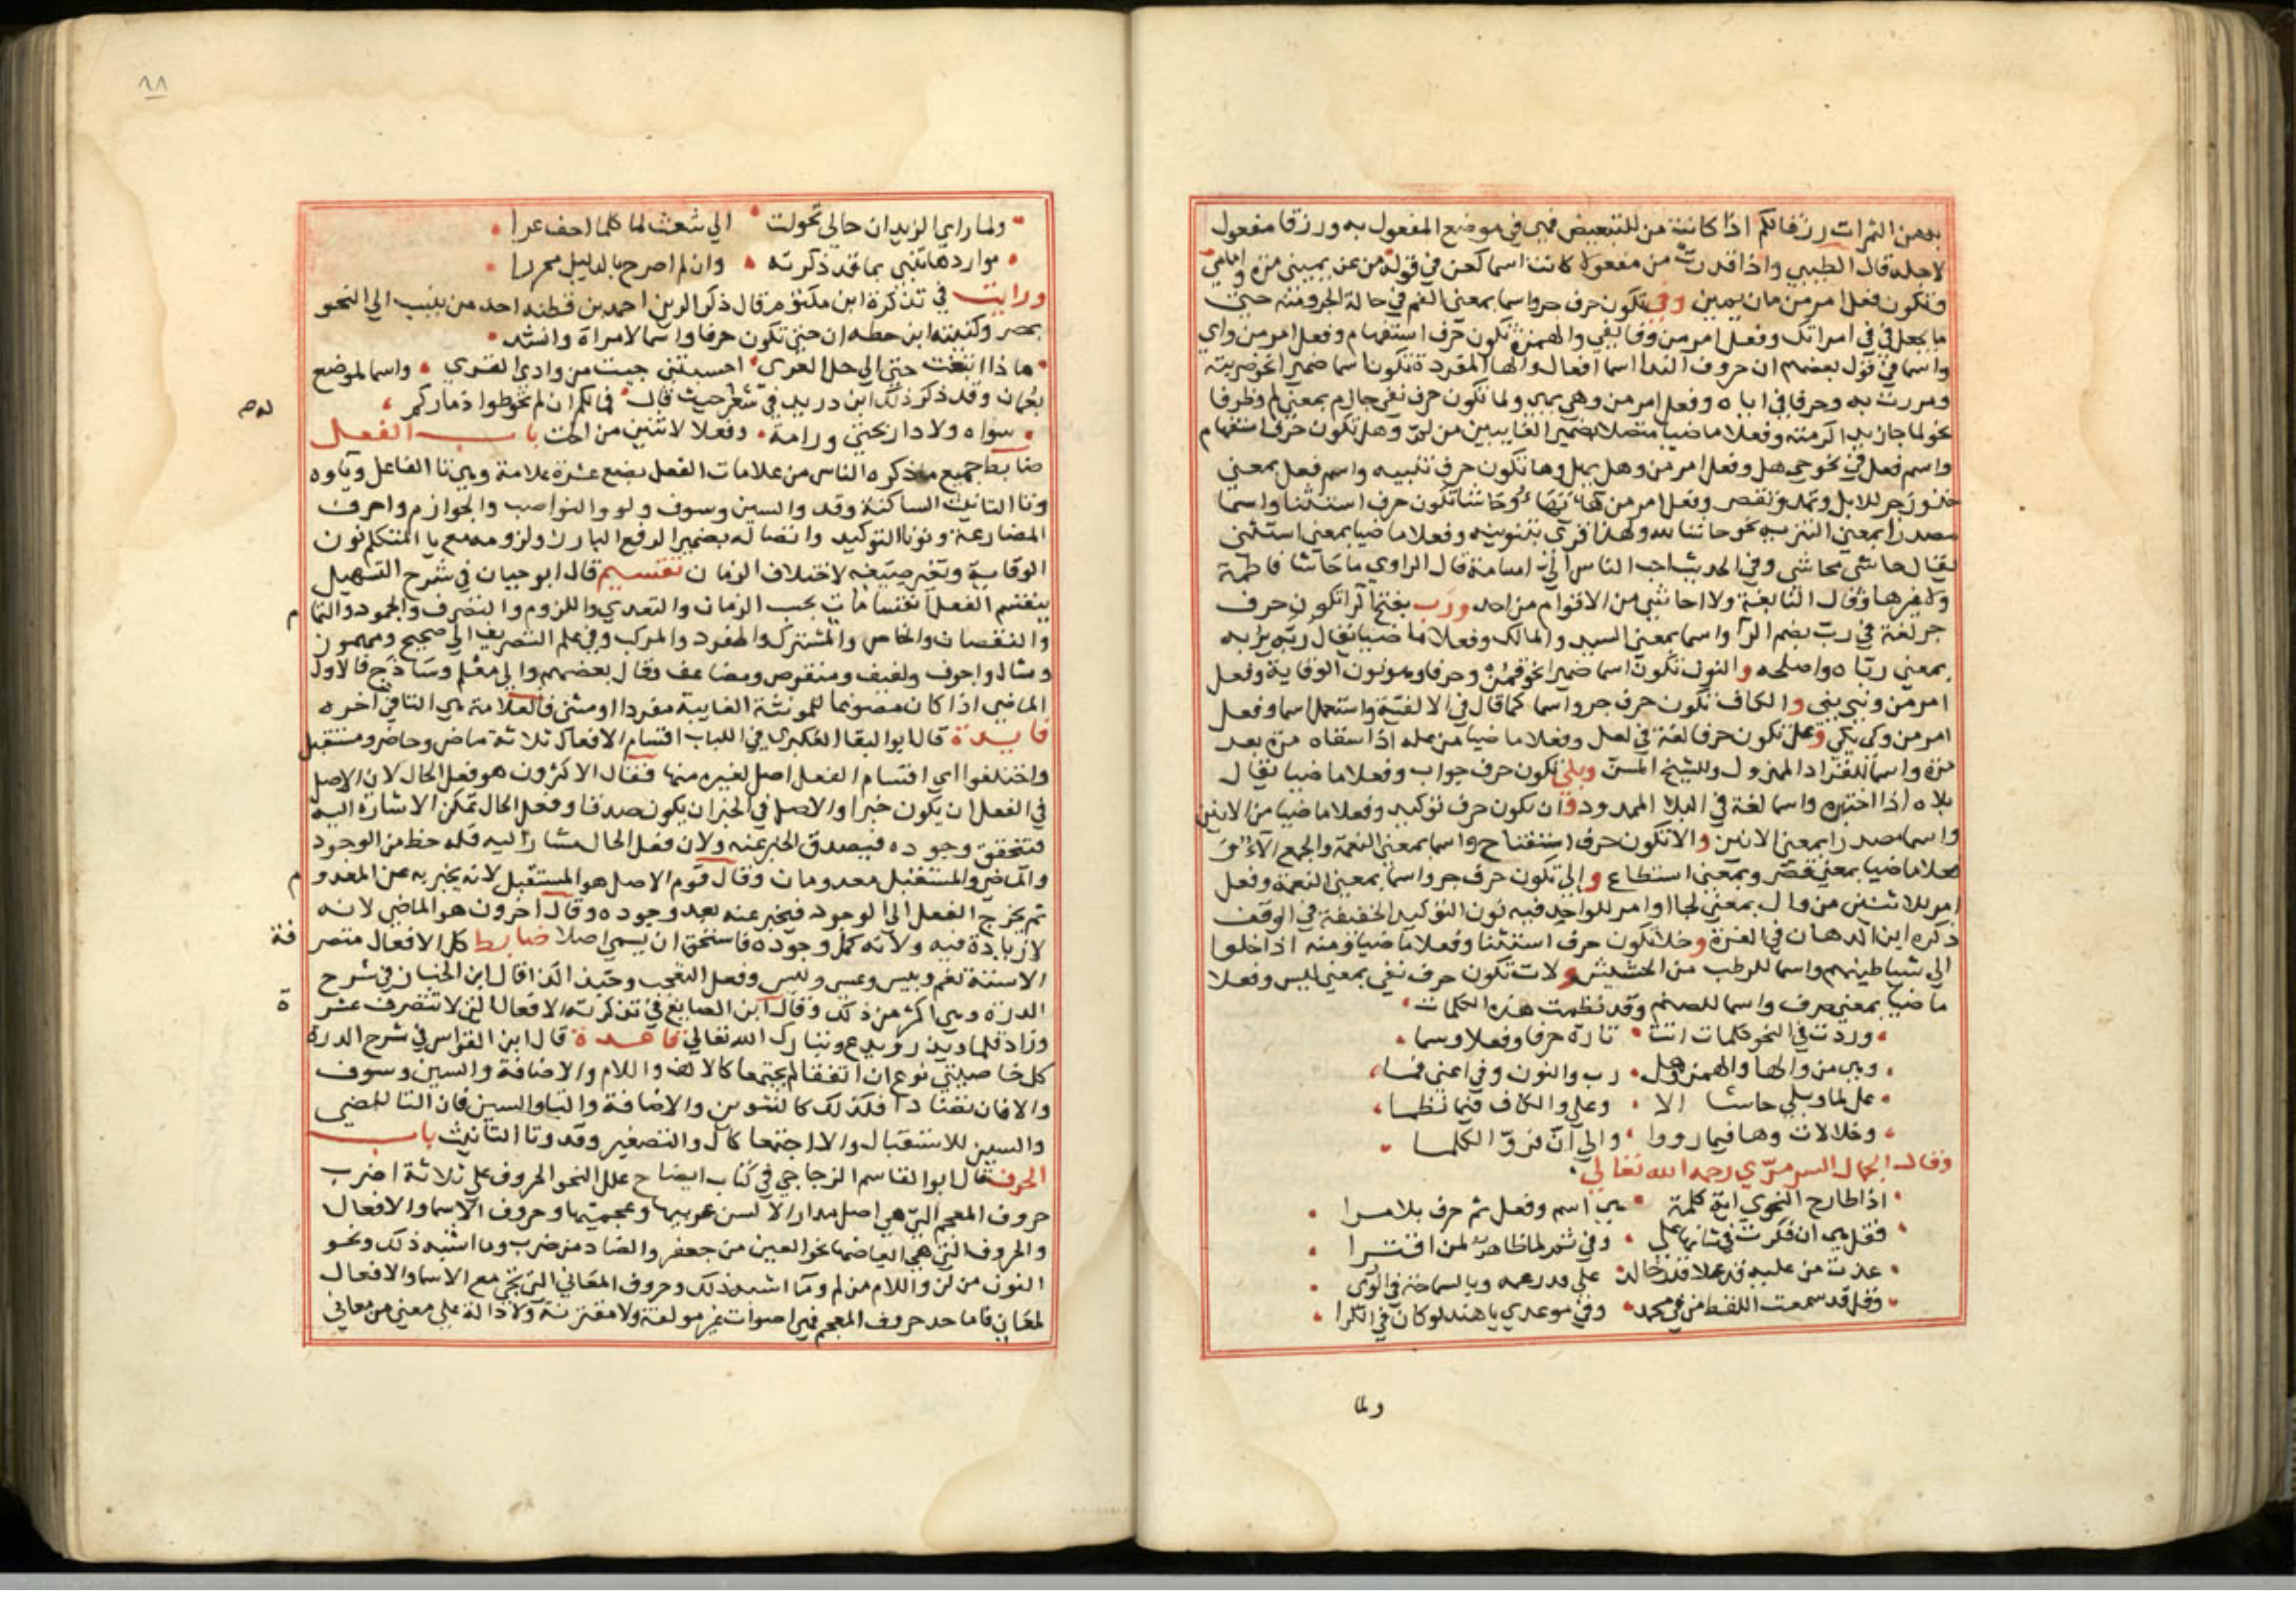 به من الثمرات رزقا لكم اذا كانت من للتبعيض فهي في موضع المفعول به ورزقا مفعول
لاجله قال الطيبي واذا قدرت من مفعولا كانت اسما كعن في قوله من عن يميني مرة وامامي
وتكون فعل امر من مان يمين وفي تكون حرف جر واسما بمعنى الفم في حالة الجر ومنه حتى
ما يجعل في في امراتك وفعل امر من وفا يفي والهمزة تكون حرف استفهام وفعل امر من واي
واسما في قول بعضهم ان حروف الندا اسما افعال والها المفردة تكون اسما ضميرا نحو ضربته
ومررت به وحرفا في اياه وفعل امر من وهي يهي ولما تكون حرف نفي جازم بمعنى لم وظرفا
نحو لما جا زيد اكرمته وفعلا ماضيا متصلا بضمير الغايبين من لم وهل تكون حرف استفهام
واسم فعل في نحو حي هل وفعل امر من وهل يهل وها تكون حرف تنبيه واسم فعل بمعنى
خذ وزجر للابل وتمد وتقصر وفعل امر من هاء يهاء وحاشا تكون حرف استثنا واسما
مصدرا بمعنى التنزيه نحو حاشا لله ولهذا قري بتنوينه وفعلا ماضيا بمعنى استثنى
يقال حاشى يحاشي وفي الحديث احب الناس الي اسامة قال الراوي ما حاشا فاطمة
ولا غيرها وقال النابغة ولا احاشي من الاقوام من احد ورب بفتح الرا تكون حرف
جر لغة في رب بضم الرا واسما بمعنى السيد والمالك وفعلا ماضيا يقال ربه يربه
بمعنى رباه واصلحه والنون تكون اسما ضميرا نحو قمن وحرفا وهو نون الوقاية وفعل
امر من وني يني والكاف تكون حرف جر واسما كما قال في الالفية واستعمل اسما وفعل
امر من وكى يكي وعل تكون حرفا لغة في لعل وفعلا ماضيا من عله اذا سقاه مرة بعد
مرة واسما للقراد المهزول وللشيخ المسن وبلى تكون حرف جواب وفعلا ماضيا يقال
بلاه اذا اختبره واسما لغة في البلا الممدود وان تكون حرف توكيد وفعلا ماضيا من الانين
واسما مصدرا بمعنى الانين والا تكون حرف استفتاح واسما بمعنى النعمة والجمع الآء
فعلا ماضيا بمعنى قصر وبمعنى استطاع والى تكون حرف جر واسما بمعنى النعمة وفعل
امر للاثنين من وال بمعنى لجا او امر للواحد فيه نون التوكيد الخفيفة في الوقف
ذكره ابن الدهان في الغرة وخلا تكون حرف استثنا وفعلا ماضيا ومنه اذا خلوا
الى شياطينهم واسما للرطب من الحشيش ولات تكون حرف نفي بمعنى ليس وفعلا
ماضيا بمعنى صرف واسما للصنم وقد نظمت هذه الكلمات
وردت في النحو كلمات اتت تارة حرفا وفعلا وسما
وهي من والها والهمز وهل رب والنون وفي اعني فما
عل لما وبلى حاشا الا وعلى والكاف فيما نظما
وخلا لات وها فيما رووا والى ان فرو الكلما
وقال الجمال السرمري رحمه الله تعالى
اذا طارح النحوي اية كلمة هي اسم وفعل ثم حرف بلا مرا
فقل هي ان فكرت في شانها على وفي ثم لما ظاهر لمن اقترا
غدت من عليه قد علا قدر خالد على قدر عمرو بالسماحة في الورى
وقل قد سمعت اللفظ من في محمد وفي موعدي يا هند لو كان في الكرا
ولما
٩٨
ولما راى الزيدان حالي تحولت الى شعث لما كلما اخف عرا
موارد هاتنبي بما قد ذكرته وان لم اصرح بالدليل محررا
ورايت في تذكرة ابن مكتوم قال ذكر الزين احمد بن قطنه احد من ينسب الى النحو
بمصر وكتبته ابن حطه ان حتى تكون حرفا واسما لامراة وانشد
ماذا ابتغت حتى الى حل العرى احسبتني جيت من وادي القرى واسما لموضع
بعمان وقد ذكر ذلك ابن دريد في شعر حيث قال فمالكم ان لم تحوطوا ذماركم
سواه ولا دار بحتى ورامة وفعلا لاثنين من الحت باب الفعل
ضابط جميع ما ذكره الناس من علامات الفعل بضع عشرة علامة وهي تا الفاعل وياوه
وتا التانيث الساكنة وقد والسين وسوف ولو والنواصب والجوازم واحرف
المضارعة ونونا التوكيد واتصاله بضمير الرفع البارز ولزومه مع يا المتكلم نون
الوقاية وتغير صيغه لاختلاف الزمان تقسيم قال ابو حيان في شرح التسهيل
ينقسم الفعل انقسامات بحسب الزمان والتعدي واللزوم والتصرف والجمود والتمام
والنقصان والخاص والمشترك والمفرد والمركب وفي علم التصريف الى صحيح ومهموز
ومثال واجوف ولفيف ومنقوص ومضاعف وقال بعضهم والى معلم وساذج فالاول
الماضي اذا كان مصوغا للمونثة الغايبة مفردا او مثنى فالعلامة هي التا في اخره
فايدة قال ابو البقا العكبري في اللباب اقسام الافعال ثلاثة ماض وحاضر ومستقبل
واختلفوا اي اقسام الفعل اصل لغيره منها فقال الاكثرون هو فعل الحال لان الاصل
في الفعل ان يكون خبرا والاصل في الخبر ان يكون صدقا وفعل الحال تمكن الاشارة اليه
فيتحقق وجوده فيصدق الخبر عنه ولان فعل الحال مشار اليه فله حظ من الوجود
والماضي والمستقبل معدومان وقال قوم الاصل هو المستقبل لانه يخبر به عن المعدوم
ثم يخرج الفعل الى الوجود فيخبر عنه بعد وجوده وقال اخرون هو الماضي لانه
لا زيادة فيه ولانه كمل وجوده فاستحق ان يسمى اصلا ضابط كل الافعال متصرفة
الا ستة نعم وبيس وعسى وليس وفعل التعجب وحبذا الذا قال ابن الخباز في شرح
الدرة وهي اكثر من ذلك وقال ابن الصايغ في تذكرته الافعال التي لا تتصرف عشرة
وزاد قلما ويذر ويدع وتبارك الله تعالى قاعدة قال ابن القواس في شرح الدرة
كل خاصيتي نوع ان اتفقا لم يجتمعا كالالف واللام والاضافة والسين وسوف
والا فان تضادا فكذلك كالتنوين والاضافة والتا والسين فان التا للمضي
والسين للاستقبال والا اجتمعا كال والتصغير وقد وتا التانيث باب
الحرف قال ابو القاسم الزجاجي في كتاب ايضاح علل النحو الحروف على ثلاثة اضرب
حروف المعجم التي هي اصل مدار الالسن عربيها وعجميتها وحروف الاسما والافعال
والحروف التي هي ابعاضها نحو العين من جعفر والضاد من ضرب وما اشبه ذلك ونحو
النون من لن واللام من لم وما اشبه ذلك وحروف المعاني التي تجي مع الاسما والافعال
لمعان فاما حد حروف المعجم فهي اصوات غير مولفة ولا مقترنة ولا دالة على معنى من معاني